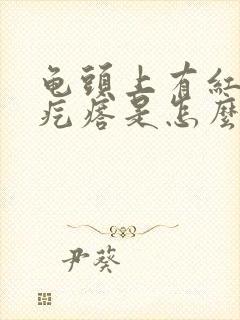 龟頭上有紅
疙瘩是怎麼
尹葵